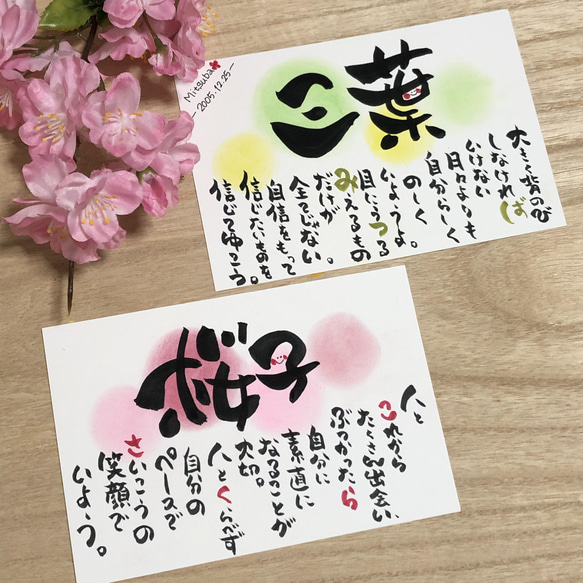 三葉
Mitsuba
-2005.12.25-
大きく背のび
しなければ
いけない
日々よりも
自分らしく
のしく
いようよ。
目にうつる
みえるもの
だけが
全てじゃない。
自信をもって
信じたいものを
信じてゆこう。
桜子
人と
これから
たくさん出会い、
ぶつかったら
自分に
素直に
なることが
大切。
人とくらべず
自分の
ペースで
さいこうの
笑顔で
いよう。